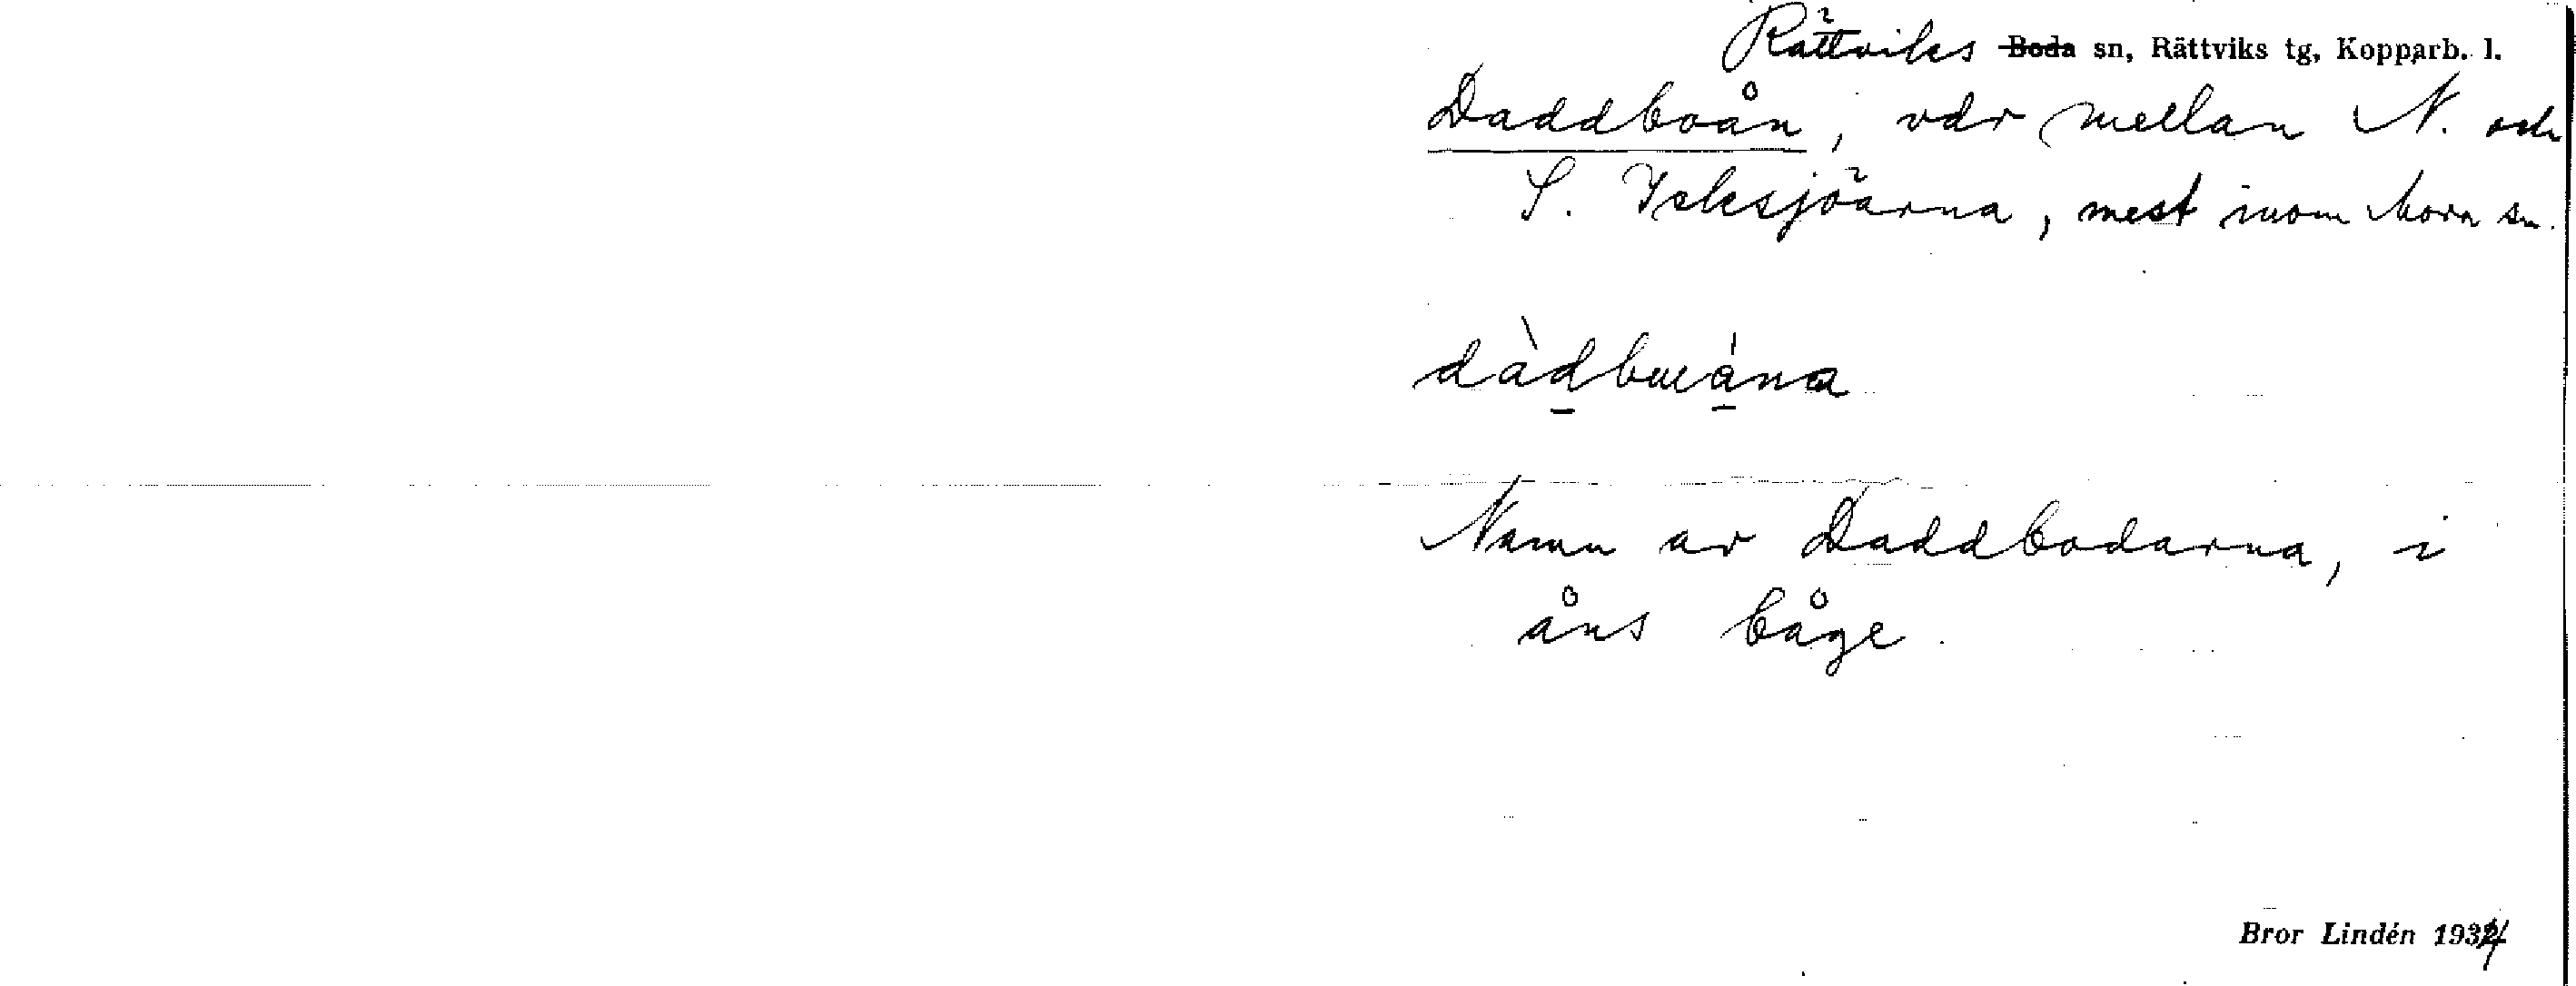 Rättviks Boda sn, Rättviks tg, Kopparb. l.
Daddboån, vdr mellan N. och
S. Icksjöarna, mest inom Mora sn.
dàdbuána
Namn av Daddbodarna, i
åns båge.
Bror Lindén 1934